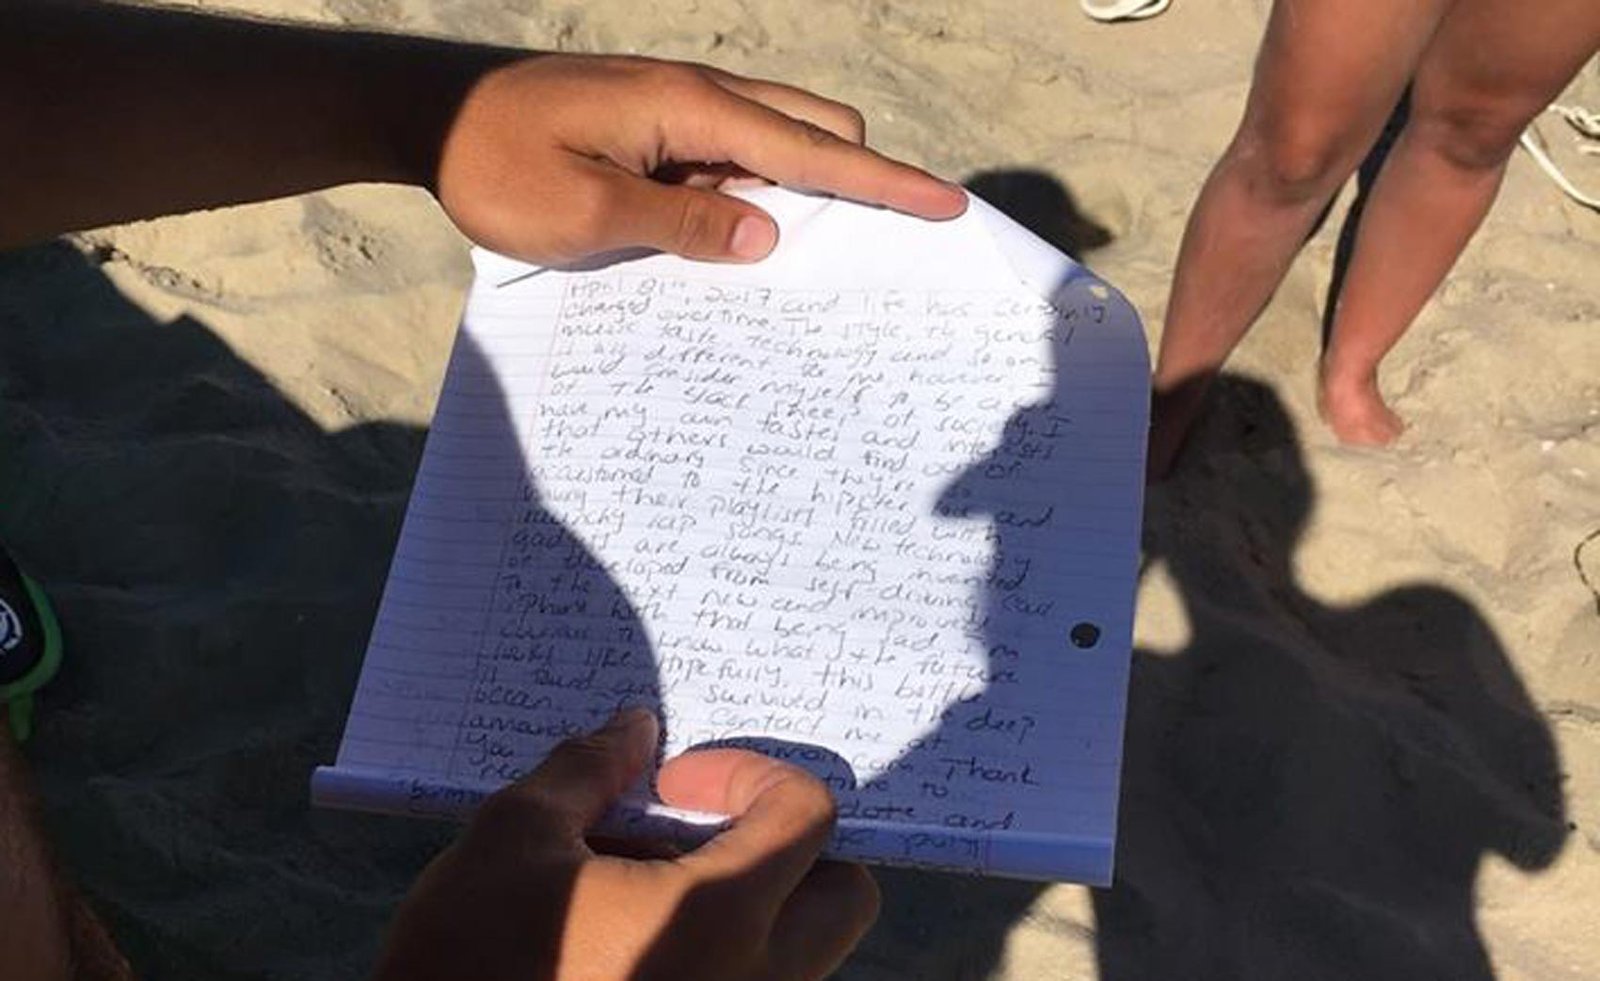 April 21st, 2017 and life has certainly
changed overtime. The style, the general
music taste technology and so on
is all different. The me, however I
would consider myself to be a
of the black sheep of society. I
have my own tastes and interests
that others would find out of
the ordinary since they're so
accustomed to the hipster and
having their playlists filled with
raunchy rap songs. New technology
gadgets are always being invented
or developed from self-driving car
to the next new and improved
iPhone. With that being said, I'm
curious to know what the future
looks like. Hopefully, this bottle
is and survived in the deep
ocean. contact me at
amanda .com. Thank
You time to
date and